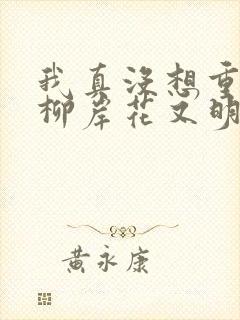 我真没想重
柳岸花又明
黄永康